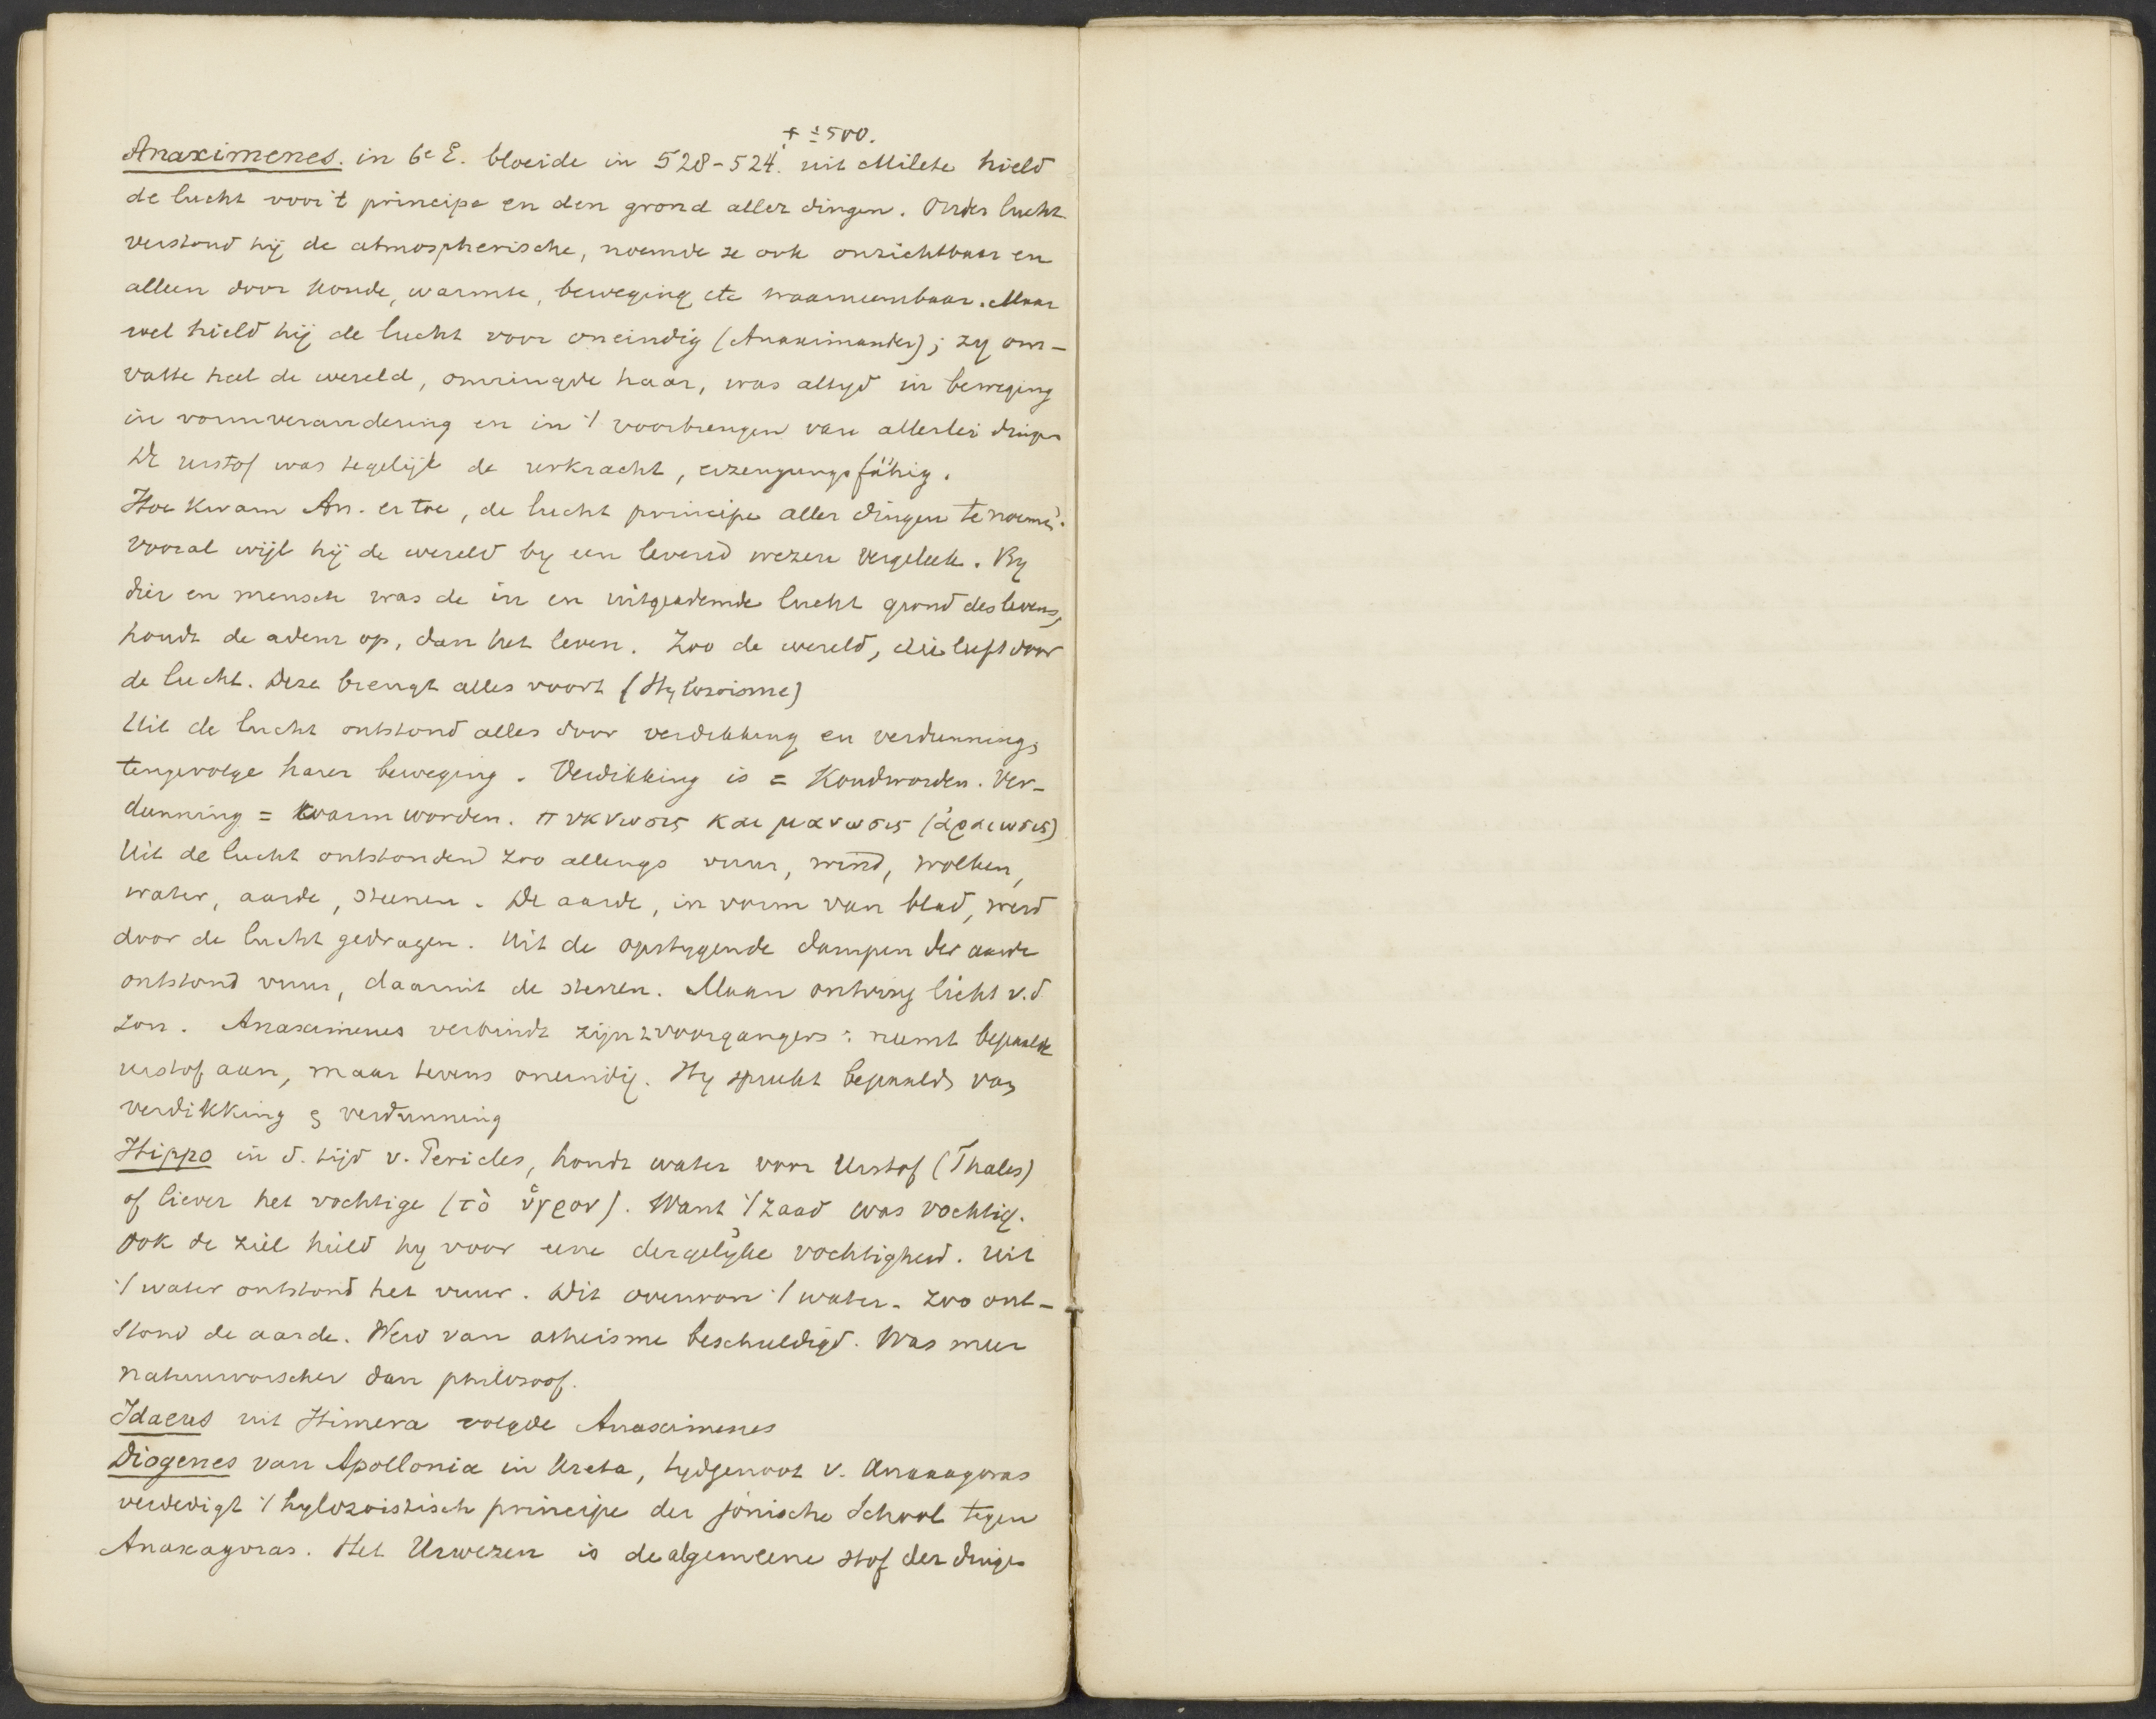 † ± 500.
Anaximenes. in 6e E. bloeide in 528-524. uit Milete hield
de lucht voor 't principe en den grond aller dingen. Onder lucht
verstond hij de atmospherische, noemde ze ook onzichtbaar en
alleen door koude, warmte, beweging etc waarneembaar. Maar
wel hield hij de lucht voor oneindig (Anaximander); zy om-
vatte heel de wereld, omringde haar, was altyd in beweging
in vormverandering en in 't voortbrengen van allerlei dingen
De urstof was tegelijk de urkracht, erzeugungsfähig.
Hoe kwam An. er toe, de lucht principe aller dingen te noemen.
Vooral wijl hij de wereld by een levend wezen vergeleek. By
dier en mensch was de in en uitgeademde lucht grond des levens,
houdt de adem op, dan het leven. Zoo de wereld, die leeft door
de lucht. Deze brengt alles voort (Hylozoisme)
Uit de lucht ontstond alles door verdikking en verdunning,
tengevolge harer beweging. Verdikking is = Koudworden. Ver-
dunning = warm worden. πυκνωσις και μανωσις (ἀραιωσις)
Uit de lucht ontstonden zoo allengs vuur, wind, wolken,
water, aarde, steenen. De aarde, in vorm van blad, werd
door de lucht gedragen. Uit de opstygende dampen der aarde
ontstond vuur, daaruit de sterren. Maan ontving licht v.d
zon. Anaximenes verbindt zijn 2 voorgangers: neemt bepaalde
urstof aan, maar tevens oneindig. Hy spreekt bepaald van
verdikking & verdunning
Hippo in d. tijd v. Pericles, houdt water voor Urstof (Thales)
of liever het vochtige (τὸ ὑγρον). Want 't zaad was vochtig.
Ook de ziel hield hy voor eene dergelijke vochtigheid. Uit
't water ontstond het vuur. Dit overwon 't water. Zoo ont-
stond de aarde. Werd van atheisme beschuldigd. Was meer
natuurvorscher dan philosoof.
Idaeus uit Himera volgde Anaximenes
Diogenes van Apollonia in Creta, tydgenoot v. Anaxagoras
verdedigt 't hylozoistisch principe der jonische School tegen
Anaxagoras. Het Urwezen is de algemeene stof der dingen